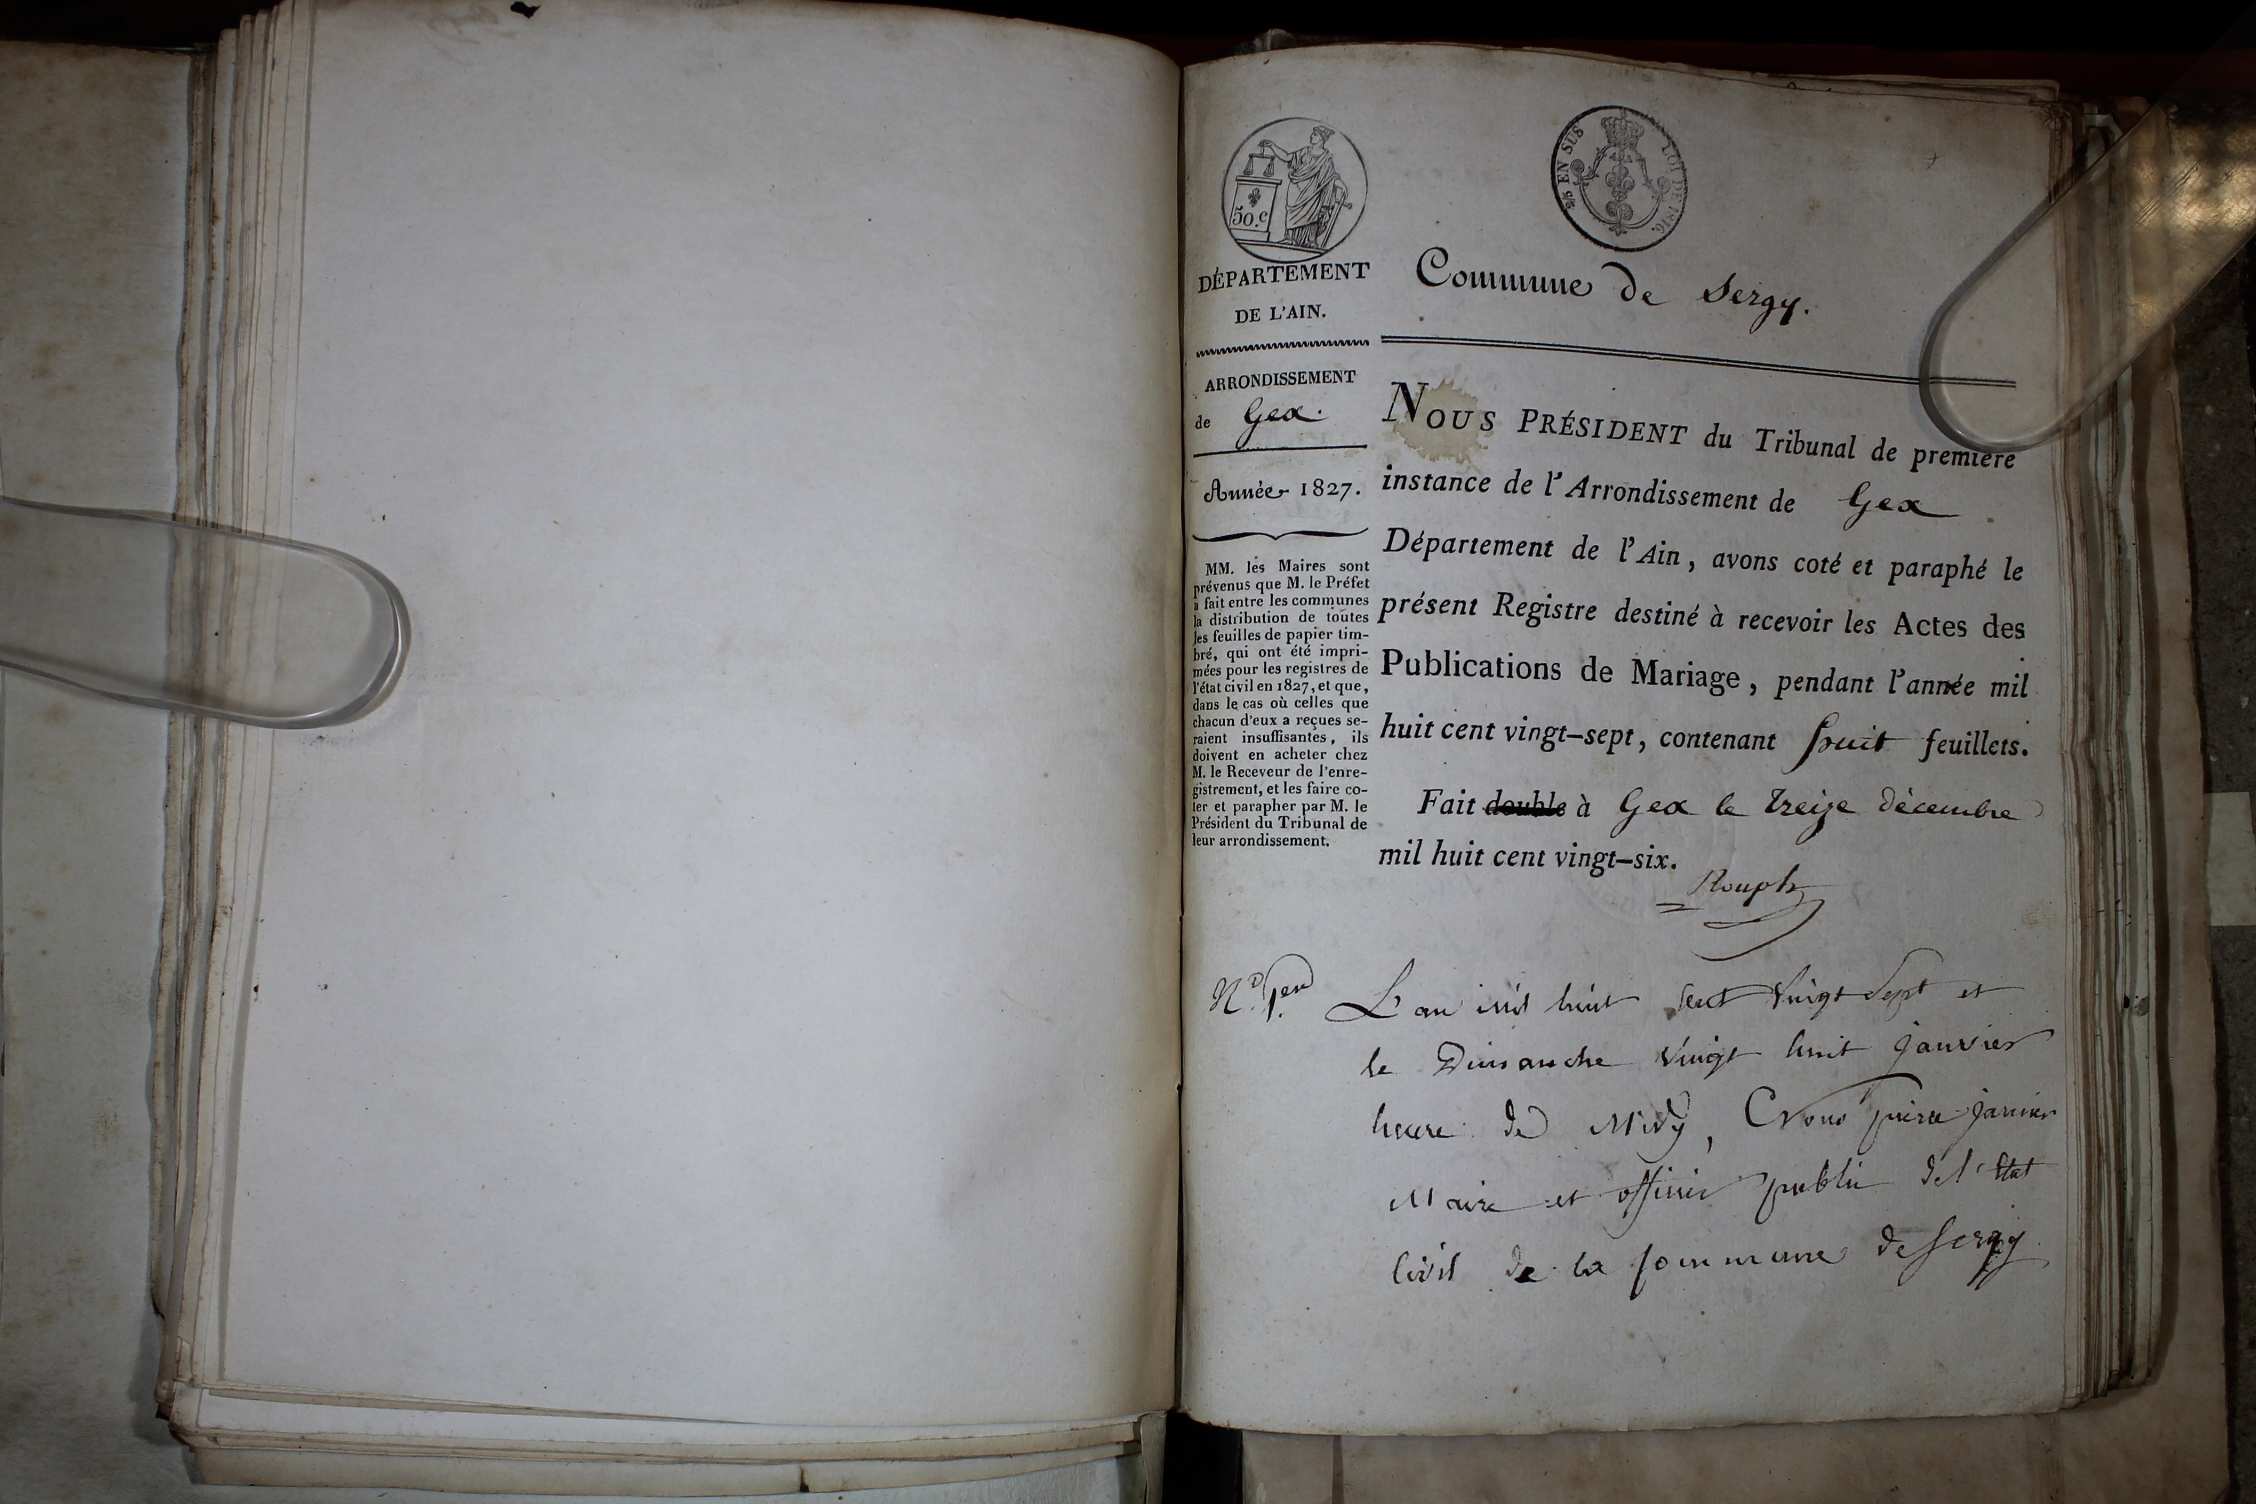 50.c
25 EN SUS
LOI DE 1816.
DÉPARTEMENT
DE L'AIN.
Commune de Sergy.
ARRONDISSEMENT
de Gex.
Année 1827.
MM. les Maires sont
prévenus que M. le Préfet
a fait entre les communes
la distribution de toutes
les feuilles de papier tim-
bré, qui ont été impri-
mées pour les registres de
l'état civil en 1827, et que,
dans le cas où celles que
chacun d'eux a reçues se-
raient insuffisantes, ils
doivent en acheter chez
M. le Receveur de l'enre-
gistrement, et les faire co-
ter et parapher par M. le
Président du Tribunal de
leur arrondissement.
NOUS PRÉSIDENT du Tribunal de première
instance de l'Arrondissement de Gex
Département de l'Ain, avons coté et paraphé le
présent Registre destiné à recevoir les Actes des
Publications de Mariage, pendant l'année mil
huit cent vingt-sept, contenant huit feuillets.
Fait double à Gex le treize décembre
mil huit cent vingt-six.
Rouph
N.o 1.er
L'an mil huit cent vingt sept et
le Dimanche vingt huit janvier
heure de Midy, Nous pierre janvier
Maire et officier public de l'Etat
Civil de la Commune de Sergy